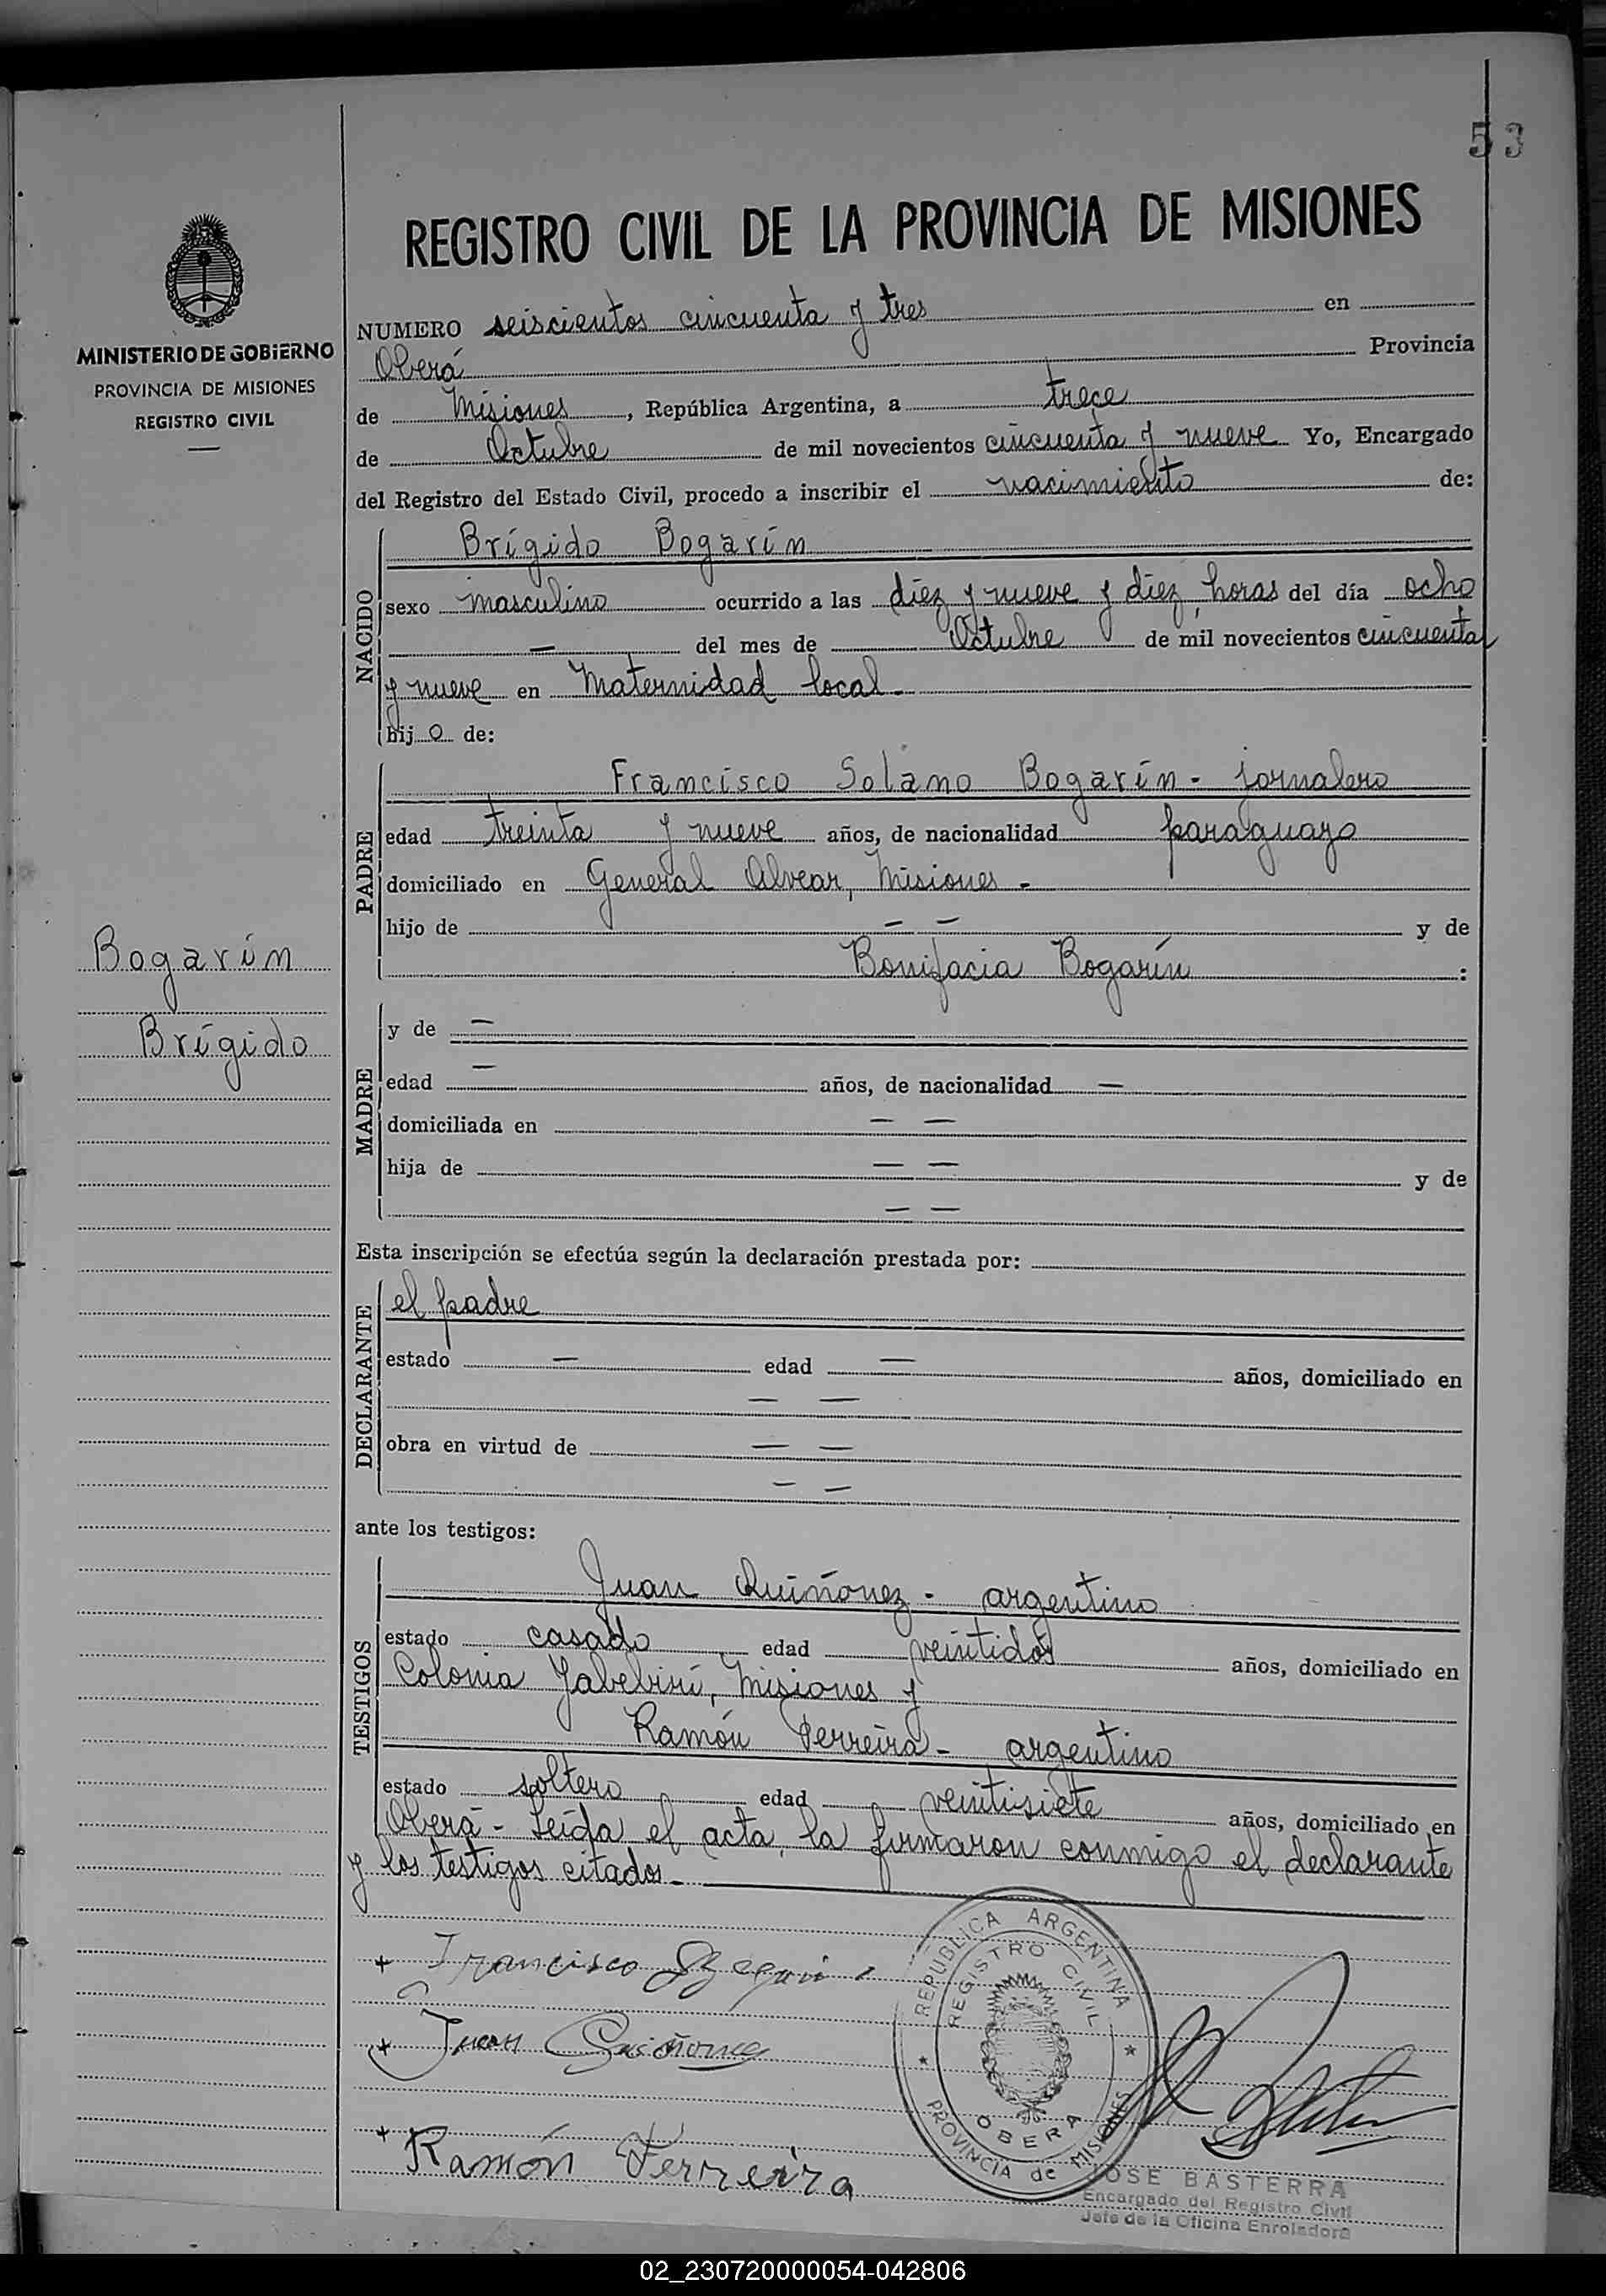 53
REGISTRO CIVIL DE LA PROVINCIA DE MISIONES
MINISTERIO DE GOBIERNO
PROVINCIA DE MISIONES
REGISTRO CIVIL
NUMERO seiscientos cincuenta y tres en
Oberá Provincia
de Misiones, República Argentina, a trece
de Octubre de mil novecientos cincuenta y nueve Yo, Encargado
del Registro del Estado Civil, procedo a inscribir el nacimiento de:
NACIDO
Brígido Bogarín
sexo masculino ocurrido a las diez y nueve y diez horas del día ocho
— del mes de Octubre de mil novecientos cincuenta
y nueve en Maternidad local.
hijo de:
PADRE
Francisco Solano Bogarín - jornalero
edad treinta y nueve años, de nacionalidad paraguayo
domiciliado en General Alvear, Misiones -
hijo de — — y de
Bonifacia Bogarín :
Bogarín
Brígido
MADRE
y de —
edad — años, de nacionalidad —
domiciliada en — —
hija de — — y de
— —
Esta inscripción se efectúa según la declaración prestada por:
DECLARANTE
el padre
estado — edad — años, domiciliado en
— —
obra en virtud de — —
— —
ante los testigos:
TESTIGOS
Juan Quiñonez - argentino
estado casado edad veintidós años, domiciliado en
Colonia Yabebirí, Misiones y
Ramón Ferreira - argentino
estado soltero edad veintisiete años, domiciliado en
Oberá - Leída el acta, la firmaron conmigo el declarante
y los testigos citados.
+ Francisco
+ Juan Quiñonez
+ Ramón Ferreira
REPUBLICA ARGENTINA
REGISTRO CIVIL
OBERA
PROVINCIA de MISIONES
JOSE BASTERRA
Encargado del Registro Civil
Jefe de la Oficina Enroladora
02_230720000054-042806